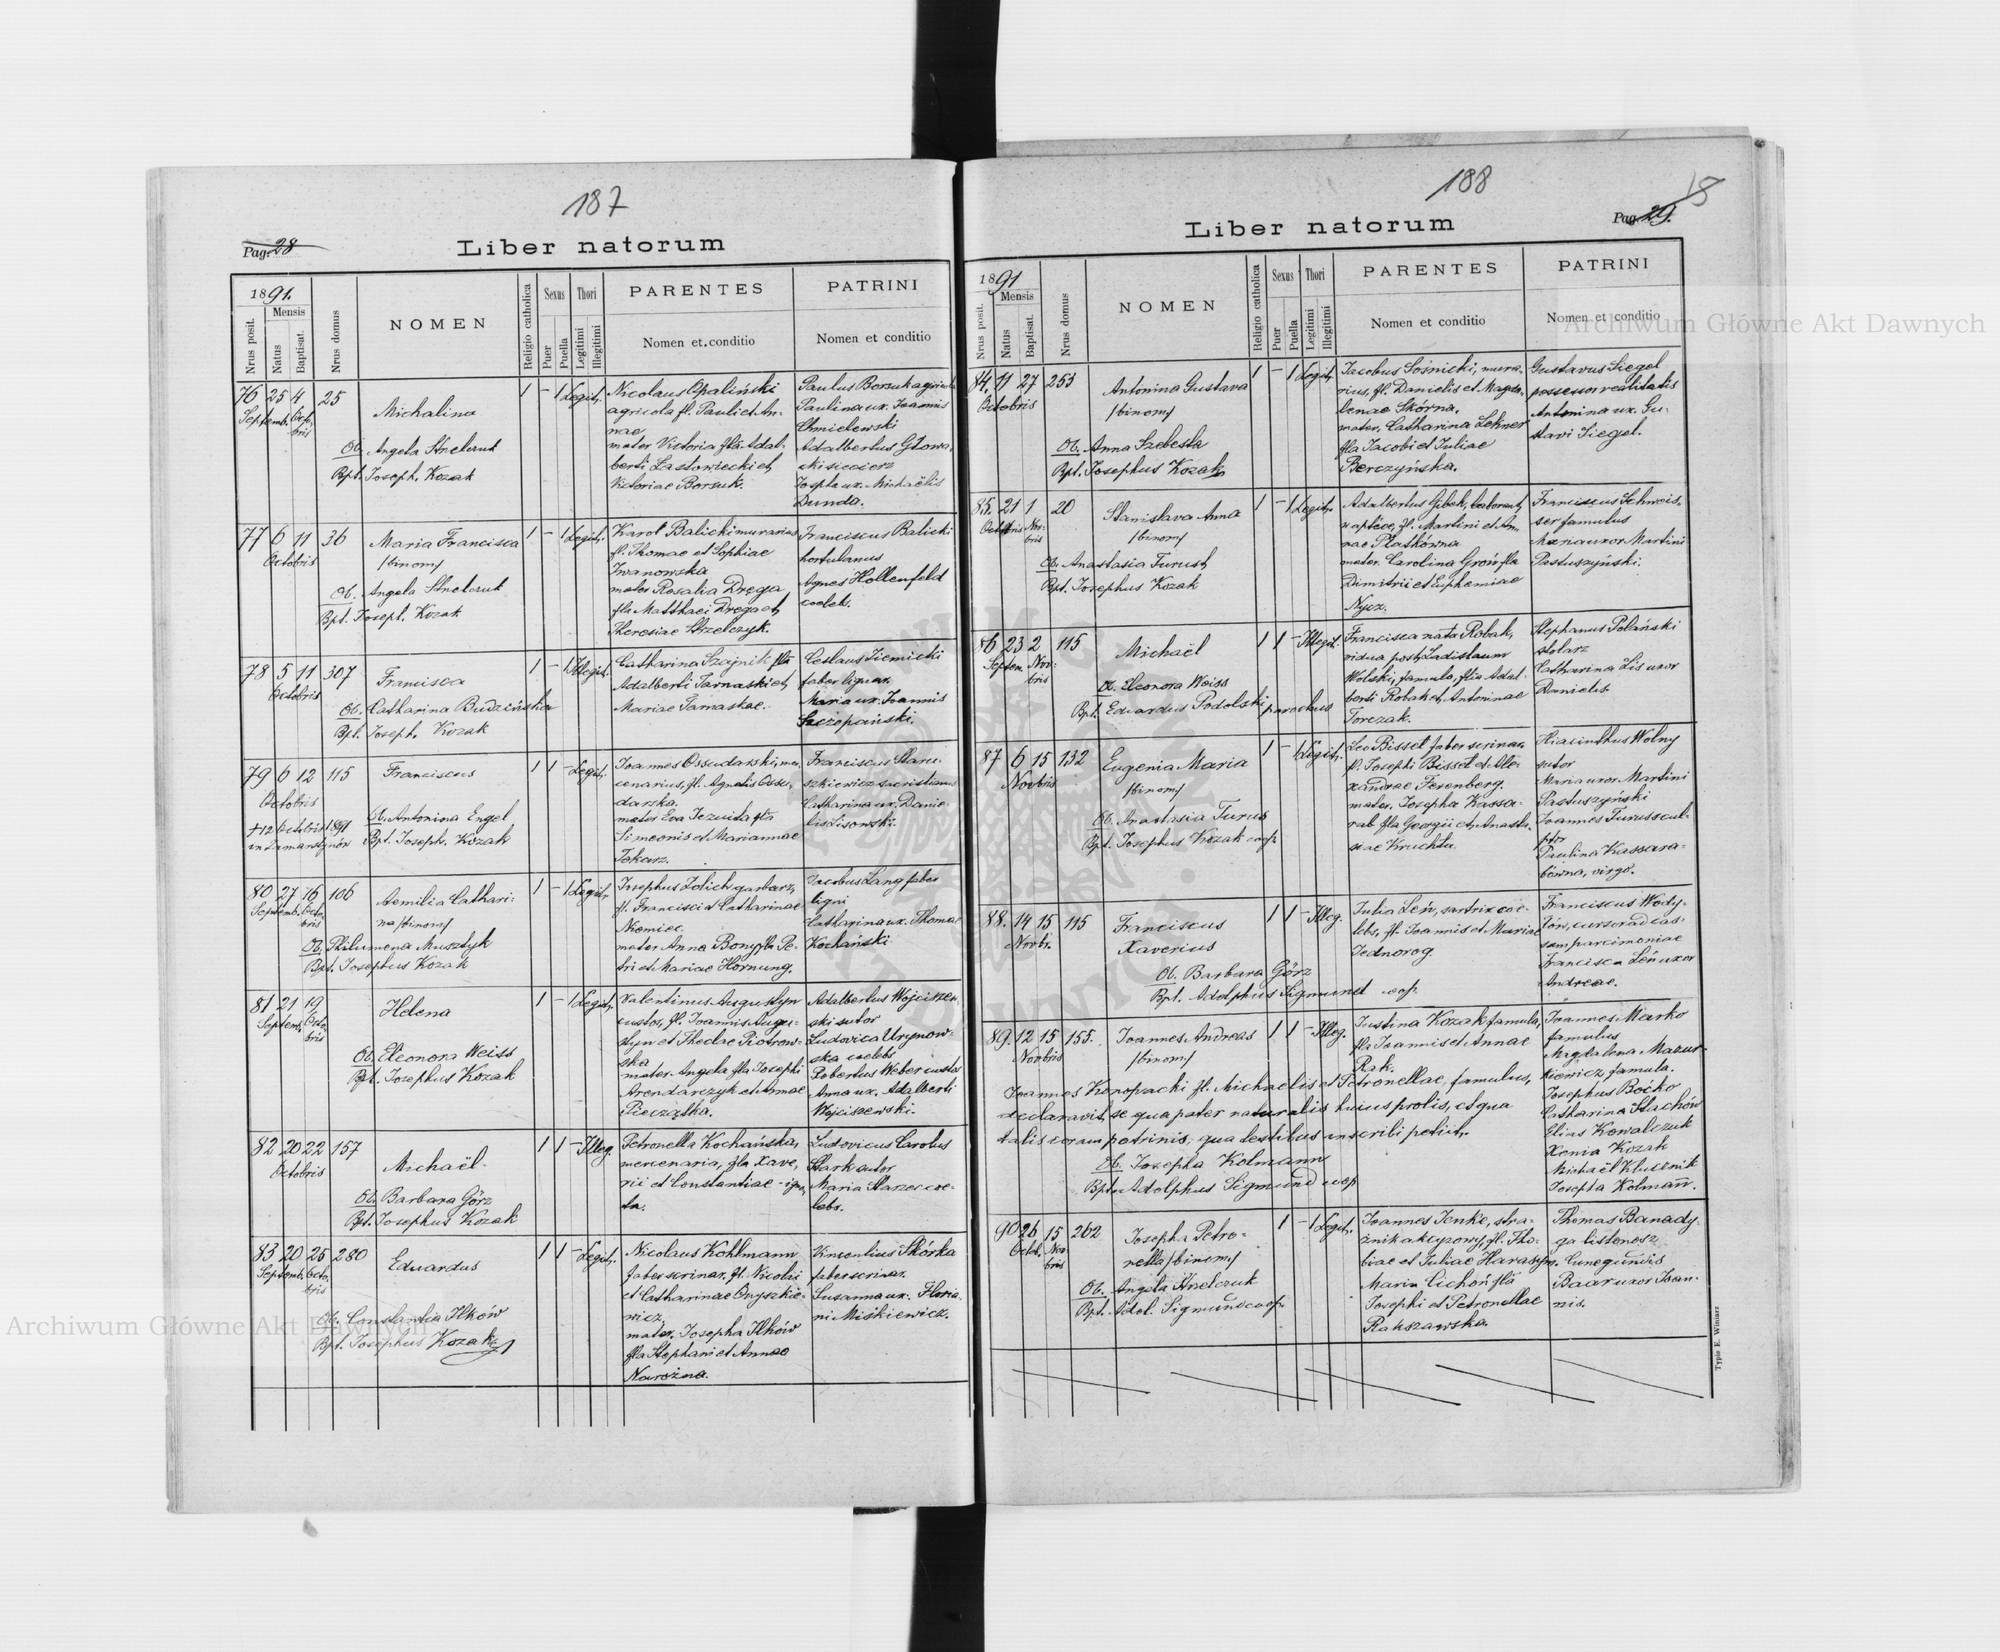 187
Pag. 28
Liber natorum
1891.
Mensis
Nrus posit.
Natus
Baptisat.
Nrus domus
NOMEN
Religio catholica
Sexus
Puer
Puella
Thori
Legitimi
Illegitimi
PARENTES
Nomen et conditio
PATRINI
Nomen et conditio
76 25 4 25
Septemb. Octobris
Michalina
Ob. Angela Strelczuk
Bpt. Joseph. Kozak
1 - 1 Legit.
Nicolaus Opaliński
agricola fl. Pauli et An-
nae
mater Victoria fla Adal-
berti Lastowiecki et
Victoriae Borsuk.
Paulus Borsuk agricola
Paulina ux. Joannis
Chmielewski
Adalbertus Głowa-
cki siecierz
Josepha ux. Michaëlis
Dunda.
77 6 11 36
Octobris
Maria Francisca
/binom/
Ob. Angela Strelczuk
Bpt. Joseph. Kozak
1 - 1 Legit.
Karol Balicki murarius
fl. Thomae et Sophiae
Iwanowska
mater Rosalia Dręga
fla Matthaei Dręga et
Theresiae Strzelczyk.
Franciscus Balicki
hortulanus
Agnes Hollenfeld
coeleb.
78 5 11 307
Octobris
Francisca
Ob. Catharina Budzińska
Bpt. Joseph. Kozak
1 - 1 Illegit.
Catharina Szajnik fla
Adalberti Tarnaski et
Mariae Tarnaskae.
Ceslaus Ziemicki
faber lignar.
Maria ux. Joannis
Szczepański.
79 6 12 115
Octobris
† 12 Octobris 1891
in Zamarstynów
Franciscus
Ob. Antonina Engel
Bpt. Joseph. Kozak
1 1 - Legit.
Joannes Ossudarski, mer-
cenarius, fl. Agnetis Ossu-
darska.
mater Eva Jezuita fla
Simeonis et Mariannae
Tokarz.
Franciscus Staru-
szkiewicz sacristianus
Catharina ux. Danie-
lis Lisowski.
80 27 16 106
Septemb. Octobris
Aemilia Cathari-
na /binom/
Ob. Philumena Musztyk
Bpt. Josephus Kozak
1 - 1 Legit.
Josephus Zdich garbarz,
fl. Francisci et Catharinae
Niemiec.
mater Anna Bony fla Pe-
tri et Mariae Hornung.
Jacobus Lang faber
ligni
Catharina ux. Thomae
Kochański.
81 21 19
Septemb. Octobris
Helena
Ob. Eleonora Weiss
Bpt. Josephus Kozak
1 - 1 Legit.
Valentinus Augustyn
custos, fl. Joannis Augu-
styn et Theclae Piotrow-
ska
mater Angela fla Josephi
Arendarczyk et Annae
Pieczątka.
Adalbertus Wojciszew-
ski sutor
Ludovica Urynow-
ska coelebs
Robertus Weber custos
Anna ux. Adalberti
Wojciszewski.
82 20 22 157
Octobris
Michaël.
Ob. Barbara Görz
Bpt. Josephus Kozak
1 1 - Illeg.
Petronella Kochańska,
mercenaria, fla Xave-
rii et Constantiae - igno-
ta.
Ludovicus Carolus
Stark sutor
Maria Starzec coe-
lebs.
83 20 25 280
Septemb. Octobris
Eduardus
Ob. Constantia Ilków
Bpt. Josephus Kozak
1 1 - Legit.
Nicolaus Kohlmann
faber scrinar. fl. Nicolai
et Catharinae Onyszkie-
wicz
mater. Josepha Ilków
fla Stephani et Annae
Narożna.
Vincentius Skórka
faber scrinar.
Susanna ux. Floria-
ni Miśkiewicz.
188
15
Pag. 29.
Liber natorum
1891
Mensis
Nrus posit.
Natus
Baptisat.
Nrus domus
NOMEN
Religio catholica
Sexus
Puer
Puella
Thori
Legitimi
Illegitimi
PARENTES
Nomen et conditio
PATRINI
Nomen et conditio
84. 11 27 253
Octobris
Antonina Gustava
/binom/
Ob. Anna Szebesta
Bpt. Josephus Kozak
1 - 1 Legit.
Jacobus Sośnicki, mura-
rius, fl. Danielis et Magda-
lenae Skórna.
mater, Catharina Lehner
fla Jacobi et Juliae
Berczyńska.
Gustavus Siegel
possessor realitatis
Antonina ux. Gu-
stavi Siegel.
85. 21 1 20
Octobris Novbris
Stanislava Anna
/binom/
Ob. Anastasia Turus
Bpt. Josephus Kozak
1 - 1 Legit.
Adalbertus Gibek,
fl. Martini et An-
nae Płatkówna
mater. Carolina Groń fla
Dimitrii et Euphemiae
Nycz.
Franciscus Schweis-
ser famulus
Maria uxor Martini
Pastuszyński.
86 23 2 115
Septem. Novbris
Michaël
Ob. Eleonora Weiss
Bpt. Eduardus Podolski parochus
1 1 - Illegit.
Francisca nata Robak,
vidua post Ladislaum
Wolski, famulo, flia Adal-
berti Robak et Antoninae
Torczak.
Stephanus Polański
stolarz
Catharina Lis uxor
Danielis.
87 6 15 132
Novbris
Eugenia Maria
/binom/
Ob. Anastasia Turus
Bpt. Josephus Kozak coop.
1 - 1 Legit.
Leo Bisset faber scrinar.
fl. Josephi Bisset et Ale-
xandrae Ferenberg.
mater. Josepha Kassa-
rab fla Georgii et Anasta-
siae Kruchta.
Hiacinthus Wolny
sutor
Maria uxor Martini
Pastuszyński
Joannes Turus scul-
ptor
Paulina Kassara-
bówna, virgo.
88. 14 15 115
Novbr.
Franciscus
Xaverius
Ob. Barbara Görz
Bpt. Adolphus Sigmund coop.
1 1 - Illeg.
Julia Leń, sartrix coe-
lebs, fl. Joannis et Mariae
Jednorog.
Franciscus Wody-
łów, cursor ad cas-
sam parcimoniae
Francisca Leń uxor
Andreae.
89. 12 15 155.
Novbris
Joannes Andreas
/binom/
1 1 - Illeg.
Justina Kozak famula,
fla Joannis et Annae
Rak.
Joannes Konopacki fl. Michaelis et Petronellae, famulus,
declaravit, se qua pater naturalis huius prolis, et qua
talis coram patrinis, qua testibus inscribi petiit.
Ob. Josepha Kolmann
Bpt. Adolphus Sigmund coop
Joannes Marko
famulus
Magdalena Mazur-
kiewicz famula.
Josephus Boćko
Catharina Stachów
Elias Kowalczuk
Xenia Kozak
Michaël Klucznik
Josepha Kolmañ.
90 26 15 262
Octob. Novbris
Josepha Petro-
nella /binom/
Ob. Angela Strelczuk
Bpt. Adol. Sigmund coop.
1 - 1 Legit.
Joannes Jenke, stra-
żnik akcyzowy, fl. Tho-
biae et Juliae Harasym.
Maria Cichoń fla
Josephi et Petronellae
Rakszawska.
Thomas Banady-
ga listonosz
Cunegundis
Baar uxor Joan-
nis.
Typis E. Winiarz
Archiwum Główne Akt Dawnych
Archiwum Główne Akt Dawnych